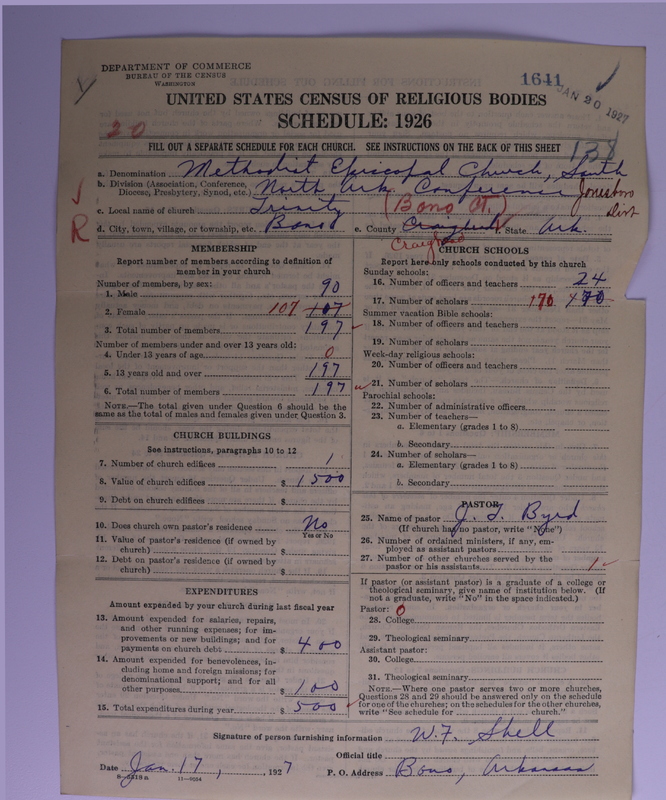 DEPARTMENT OF COMMERCE
BUREAU OF THE CENSUS
WASHINGTON
1641
JAN 20 1927
UNITED STATES CENSUS OF RELIGIOUS BODIES
SCHEDULE: 1926
20
FILL OUT A SEPARATE SCHEDULE FOR EACH CHURCH. SEE INSTRUCTIONS ON THE BACK OF THIS SHEET
138
a. Denomination Methodist Episcopal Church, South
b. Division (Association, Conference, Diocese, Presbytery, Synod, etc.) North Ark. Conference Jonesboro Dist
c. Local name of church Trinity (Bono Ct.)
R
d. City, town, village, or township, etc. Bono e. County Craighead f. State Ark.
Craighead
MEMBERSHIP
Report number of members according to definition of
member in your church
Number of members, by sex:
1. Male 90
2. Female 107 107
3. Total number of members 197
Number of members under and over 13 years old:
4. Under 13 years of age 0
5. 13 years old and over 197
6. Total number of members 197
NOTE.—The total given under Question 6 should be the
same as the total of males and females given under Question 3.
CHURCH BUILDINGS
See instructions, paragraphs 10 to 12
7. Number of church edifices 1
8. Value of church edifices $ 1500
9. Debt on church edifices $
10. Does church own pastor's residence No
Yes or No
11. Value of pastor's residence (if owned by
church) $
12. Debt on pastor's residence (if owned by
church) $
EXPENDITURES
Amount expended by your church during last fiscal year
13. Amount expended for salaries, repairs,
and other running expenses; for im-
provements or new buildings; and for
payments on church debt $ 400
14. Amount expended for benevolences, in-
cluding home and foreign missions; for
denominational support; and for all
other purposes $ 100
15. Total expenditures during year $ 500
CHURCH SCHOOLS
Report here only schools conducted by this church
Sunday schools:
16. Number of officers and teachers 24
17. Number of scholars 170 170
Summer vacation Bible schools:
18. Number of officers and teachers
19. Number of scholars
Week-day religious schools:
20. Number of officers and teachers
21. Number of scholars
Parochial schools:
22. Number of administrative officers
23. Number of teachers—
a. Elementary (grades 1 to 8)
b. Secondary
24. Number of scholars—
a. Elementary (grades 1 to 8)
b. Secondary
PASTOR
25. Name of pastor J. T. Byrd
(If church has no pastor, write "None")
26. Number of ordained ministers, if any, em-
ployed as assistant pastors
27. Number of other churches served by the
pastor or his assistants 1
If pastor (or assistant pastor) is a graduate of a college or
theological seminary, give name of institution below. (If
not a graduate, write "No" in the space indicated.)
Pastor: 0
28. College
29. Theological seminary
Assistant pastor:
30. College
31. Theological seminary
NOTE.—Where one pastor serves two or more churches,
Questions 28 and 29 should be answered only on the schedule
for one of the churches; on the schedules for the other churches,
write "See schedule for church."
Signature of person furnishing information W. F. Shell
Official title
Date Jan. 17, 1927 P. O. Address Bono, Arkansas
8—5319a 11—9054